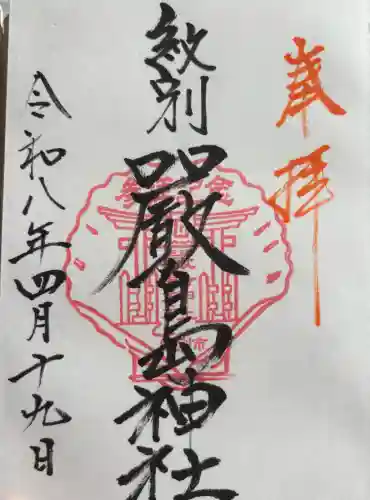 奉拝
紋別
嚴島神社
令和八年四月十九日